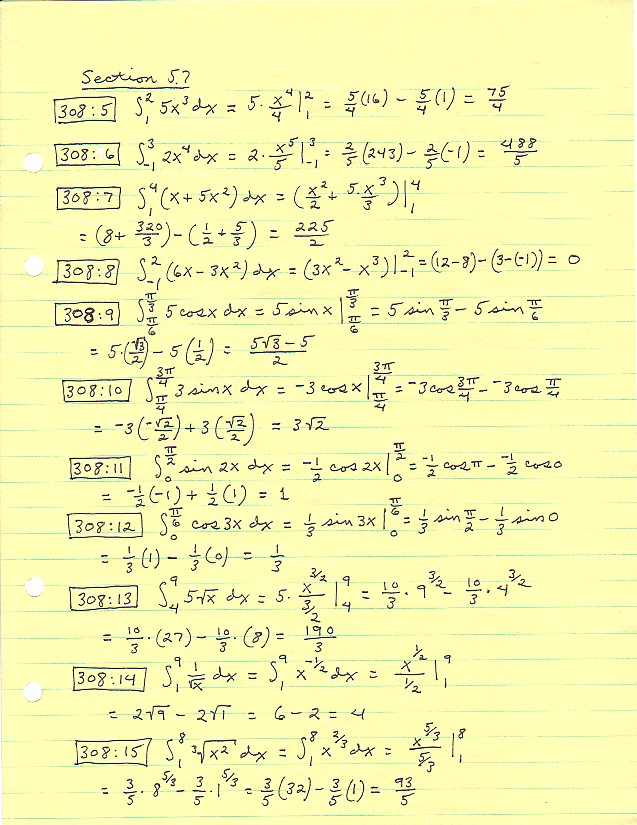 Section 5.7
308:5 ∫₁² 5x³ dx = 5·x⁴/4 |₁² = 5/4(16) − 5/4(1) = 75/4
308:6 ∫₋₁³ 2x⁴ dx = 2·x⁵/5 |₋₁³ = 2/5(243) − 2/5(-1) = 488/5
308:7 ∫₁⁴ (x + 5x²) dx = (x²/2 + 5·x³/3) |₁⁴
= (8 + 320/3) − (1/2 + 5/3) = 225/2
308:8 ∫₋₁² (6x − 3x²) dx = (3x² − x³) |₋₁² = (12−8) − (3−(-1)) = 0
308:9 ∫_{π/6}^{π/3} 5 cos x dx = 5 sin x |_{π/6}^{π/3} = 5 sin π/3 − 5 sin π/6
= 5·(√3/2) − 5(1/2) = (5√3 − 5)/2
308:10 ∫_{π/4}^{3π/4} 3 sin x dx = -3 cos x |_{π/4}^{3π/4} = -3 cos 3π/4 − -3 cos π/4
= -3(-√2/2) + 3(√2/2) = 3√2
308:11 ∫₀^{π/2} sin 2x dx = -1/2 cos 2x |₀^{π/2} = -1/2 cos π − -1/2 cos 0
= -1/2(-1) + 1/2(1) = 1
308:12 ∫₀^{π/6} cos 3x dx = 1/3 sin 3x |₀^{π/6} = 1/3 sin π/2 − 1/3 sin 0
= 1/3(1) − 1/3(0) = 1/3
308:13 ∫₄⁹ 5√x dx = 5·x^{3/2}/(3/2) |₄⁹ = 10/3·9^{3/2} − 10/3·4^{3/2}
= 10/3·(27) − 10/3·(8) = 190/3
308:14 ∫₁⁹ 1/√x dx = ∫₁⁹ x^{-1/2} dx = x^{1/2}/(1/2) |₁⁹
= 2√9 − 2√1 = 6 − 2 = 4
308:15 ∫₁⁸ ³√x² dx = ∫₁⁸ x^{2/3} dx = x^{5/3}/(5/3) |₁⁸
= 3/5·8^{5/3} − 3/5·1^{5/3} = 3/5(32) − 3/5(1) = 93/5